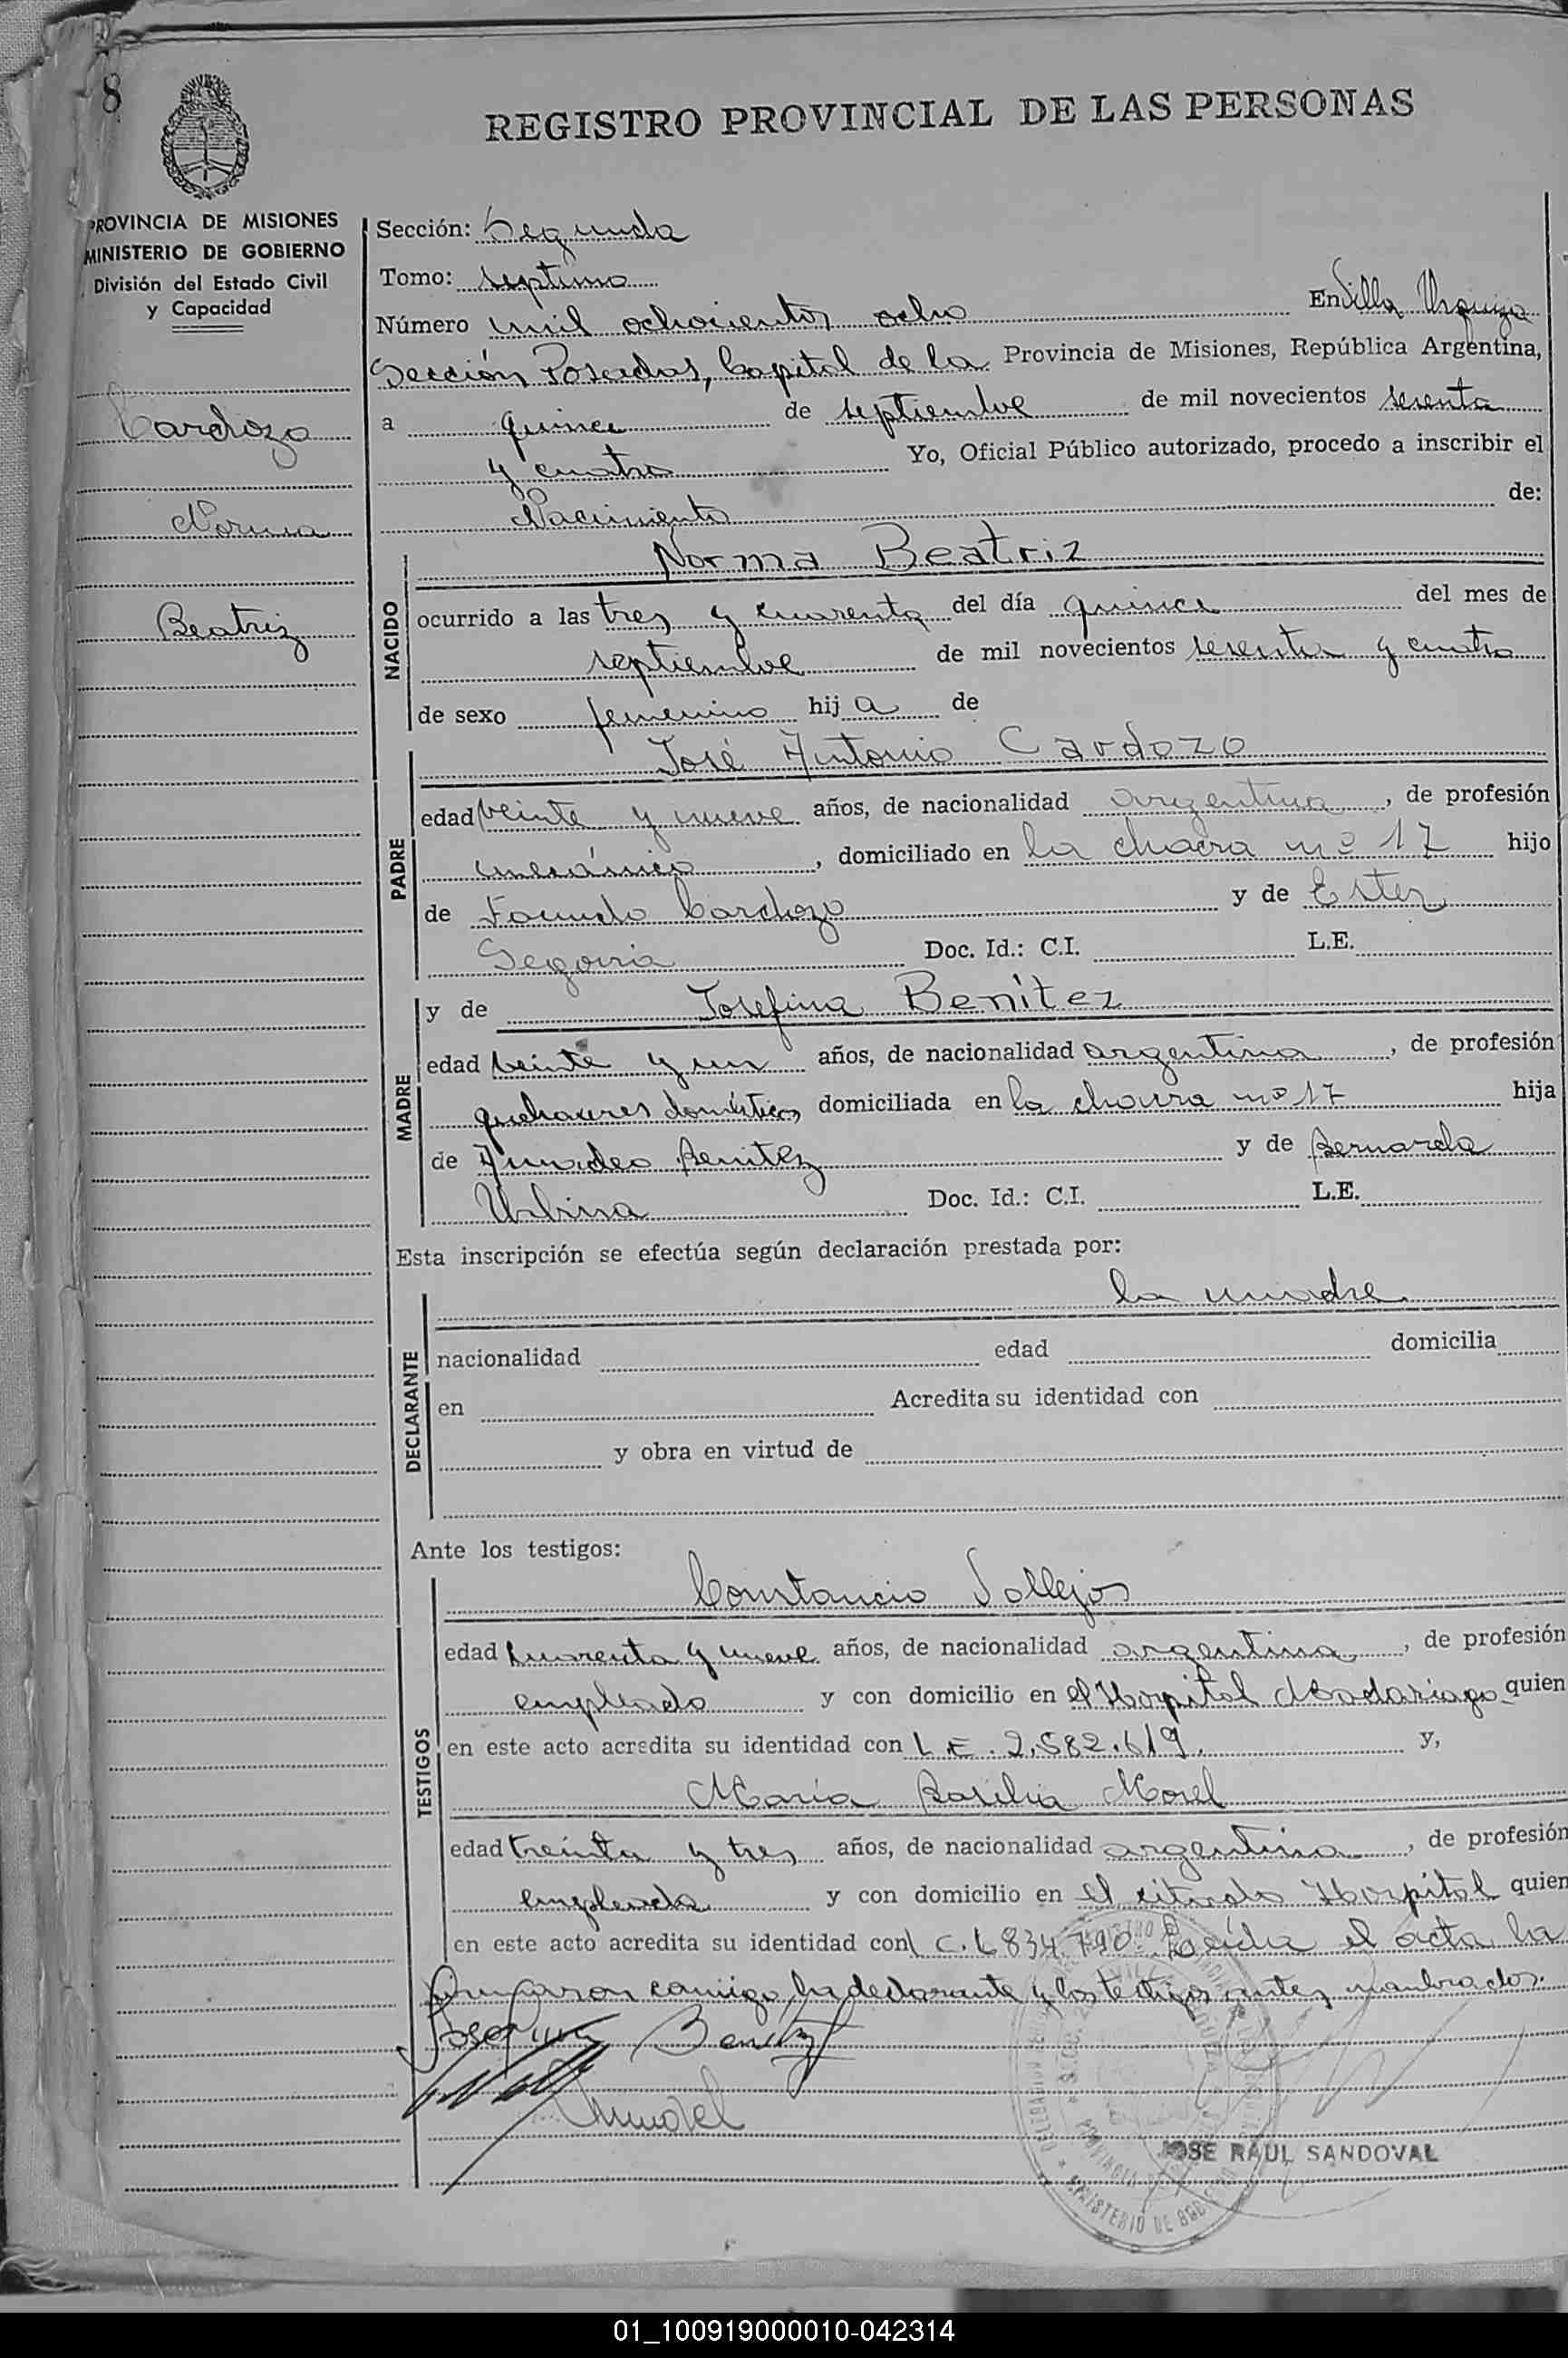 8
REGISTRO PROVINCIAL DE LAS PERSONAS
PROVINCIA DE MISIONES
MINISTERIO DE GOBIERNO
División del Estado Civil
y Capacidad
Cardozo
Norma
Beatriz
Sección: Segunda
Tomo: septimo
Número mil ochocientos ocho En Villa Urquiza
Sección Posadas, Capital de la Provincia de Misiones, República Argentina,
a quince de septiembre de mil novecientos sesenta
y cuatro Yo, Oficial Público autorizado, procedo a inscribir el
Nacimiento de:
NACIDO
Norma Beatriz
ocurrido a las tres y cuarenta del día quince del mes de
septiembre de mil novecientos sesenta y cuatro
de sexo femenino hija de
PADRE
José Antonio Cardozo
edad veinte y nueve años, de nacionalidad argentina, de profesión
mecánico, domiciliado en la chacra nº 17 hijo
de Facundo Cardozo y de Ester
Segovia Doc. Id.: C.I. L.E.
MADRE
y de Josefina Benítez
edad veinte y un años, de nacionalidad argentina, de profesión
quehaceres domésticos domiciliada en la chacra nº 17 hija
de Amadeo Benitez y de Bernarda
Urbina Doc. Id.: C.I. L.E.
Esta inscripción se efectúa según declaración prestada por:
DECLARANTE
la madre
nacionalidad edad domicilia
en Acredita su identidad con
y obra en virtud de
Ante los testigos:
TESTIGOS
Constancio Vallejos
edad cuarenta y nueve años, de nacionalidad argentina, de profesión
empleado y con domicilio en el Hospital Madariaga quien
en este acto acredita su identidad con L.E. 2.582.619. y,
María Basilia Morel
edad treinta y tres años, de nacionalidad argentina, de profesión
empleada y con domicilio en el citado Hospital quien
en este acto acredita su identidad con L.C. 6834790. Leída el acta la
firmaron conmigo, la declarante y los testigos antes nombrados.
Josefina Benitez
JOSE RAUL SANDOVAL
MINISTERIO DE GOBIERNO
01_100919000010-042314